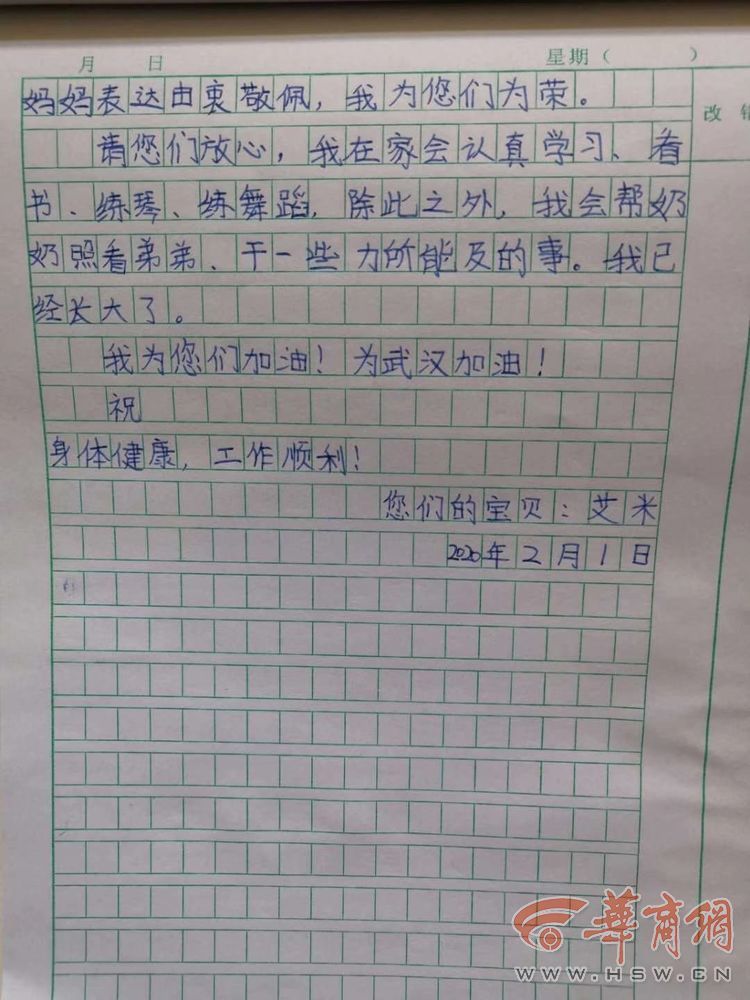 月 日 星期（ ）
改 错
妈妈表达由衷敬佩，我为您们为荣。
请您们放心，我在家会认真学习、看
书、练琴、练舞蹈，除此之外，我会帮奶
奶照看弟弟、干一些力所能及的事。我已
经长大了。
我为您们加油！为武汉加油！
祝
身体健康，工作顺利！
您们的宝贝：艾米
2020年2月1日
華商網
WWW.HSW.CN